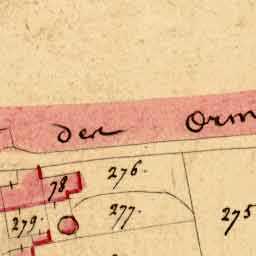 den Orm
78 276.
279. 277. 275